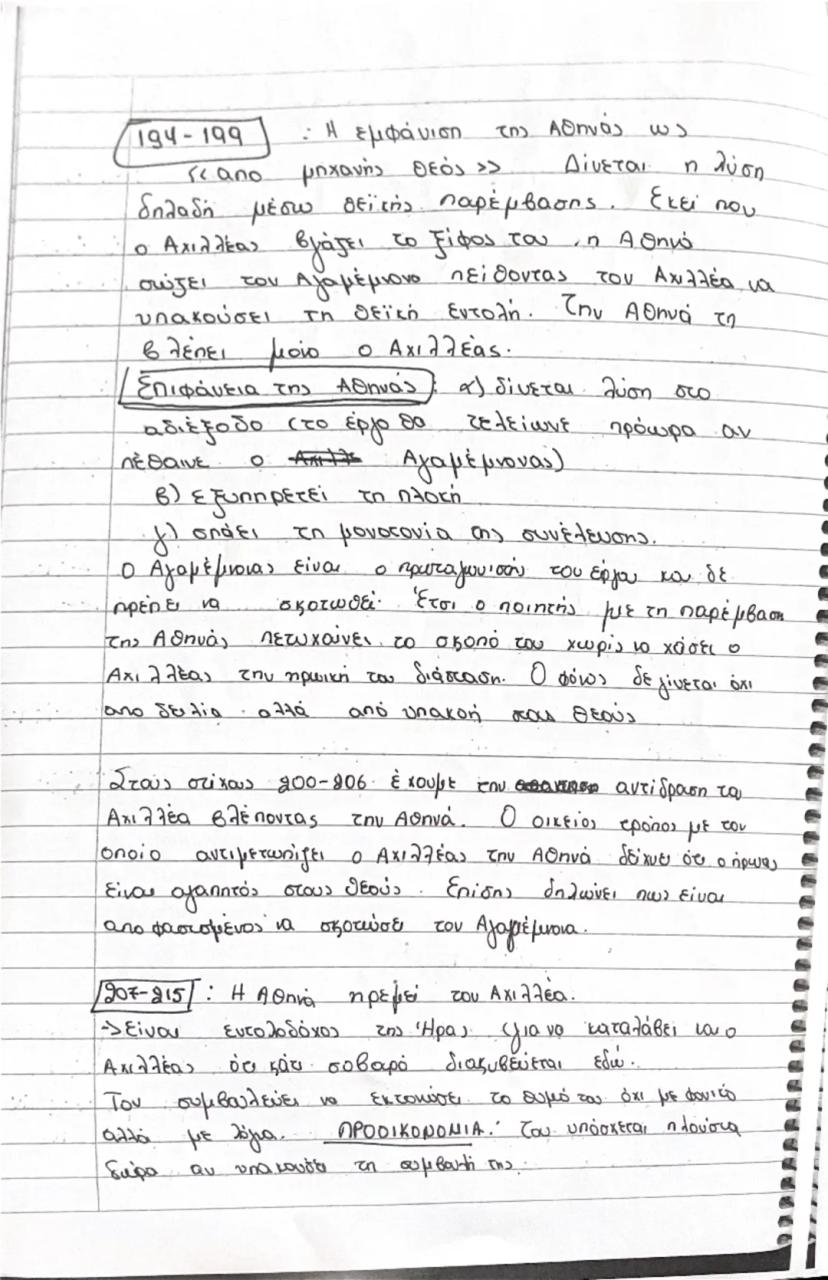 194-199 : Η εμφάνιση της Αθηνάς ως
<< απο μηχανής θεός >> Δίνεται η λύση
δηλαδή μέσω θεϊκής παρέμβασης. Εκεί που
ο Αχιλλέας βγάζει το ξίφος του, η Αθηνά
σώζει τον Αγαμέμνονα πείθοντας τον Αχιλλέα να
υπακούσει τη θεϊκή εντολή. Την Αθηνά τη
βλέπει μόνο ο Αχιλλέας.
Επιφάνεια της Αθηνάς : α) δίνεται λύση στο
αδιέξοδο (το έργο θα τελείωνε πρόωρα αν
πέθαινε ο Αγαμέμνονας)
β) εξυπηρετεί τη πλοκή
γ) σπάει τη μονοτονία της συνέλευσης.
Ο Αγαμέμνονας είναι ο πρωταγωνιστής του έργου και δε
πρέπει να σκοτωθεί. Έτσι ο ποιητής με τη παρέμβαση
της Αθηνάς πετυχαίνει το σκοπό του χωρίς να χάσει ο
Αχιλλέας την ηρωική του διάσταση. Ο φόνος δε γίνεται όχι
απο δειλία αλλά από υπακοή στους θεούς
Στους στίχους 200-206 έχουμε την αντίδραση του
Αχιλλέα βλέποντας την Αθηνά. Ο οικείος τρόπος με τον
οποίο αντιμετωπίζει ο Αχιλλέας την Αθηνά δείχνει ότι ο ήρωας
είναι αγαπητός στους θεούς. Επίσης δηλώνει πως είναι
αποφασισμένος να σκοτώσει τον Αγαμέμνονα.
207-215 : Η Αθηνά ηρεμεί τον Αχιλλέα.
→ Είναι εντολοδόχος της Ήρας για να καταλάβει και ο
Αχιλλέας ότι κάτι σοβαρό διακυβεύεται εδώ.
Τον συμβουλεύει να εκτονώσει το θυμό του όχι με φονικό
αλλά με λόγια. ΠΡΟΟΙΚΟΝΟΜΙΑ: Του υπόσχεται πλούσια
δώρα αν υπακούσει τη συμβουλή της.